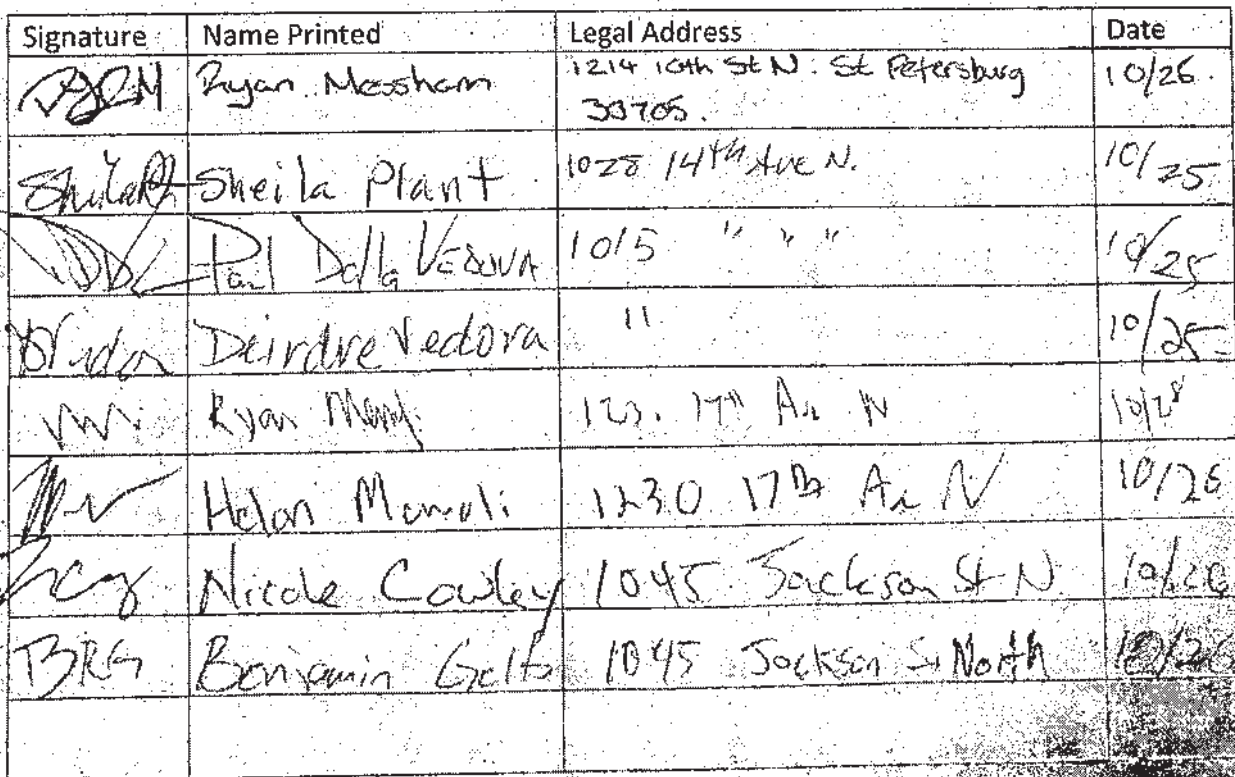 Signature Name Printed Legal Address Date
Ryan Messham 1214 10th St N. St Petersburg 10/26.
33705.
Sheila Plant 1028 14th Ave N. 10/25
Paul Dalla Vedova 1015 " " " 10/25
Deirdre Vedova " 10/25
Ryan 17th N 10/28
Helon 1230 17th Av N 10/26
Nicole Cowley 1045 Jackson St N. 10/26
BRG Benjamin 1045 Jackson St North 10/26